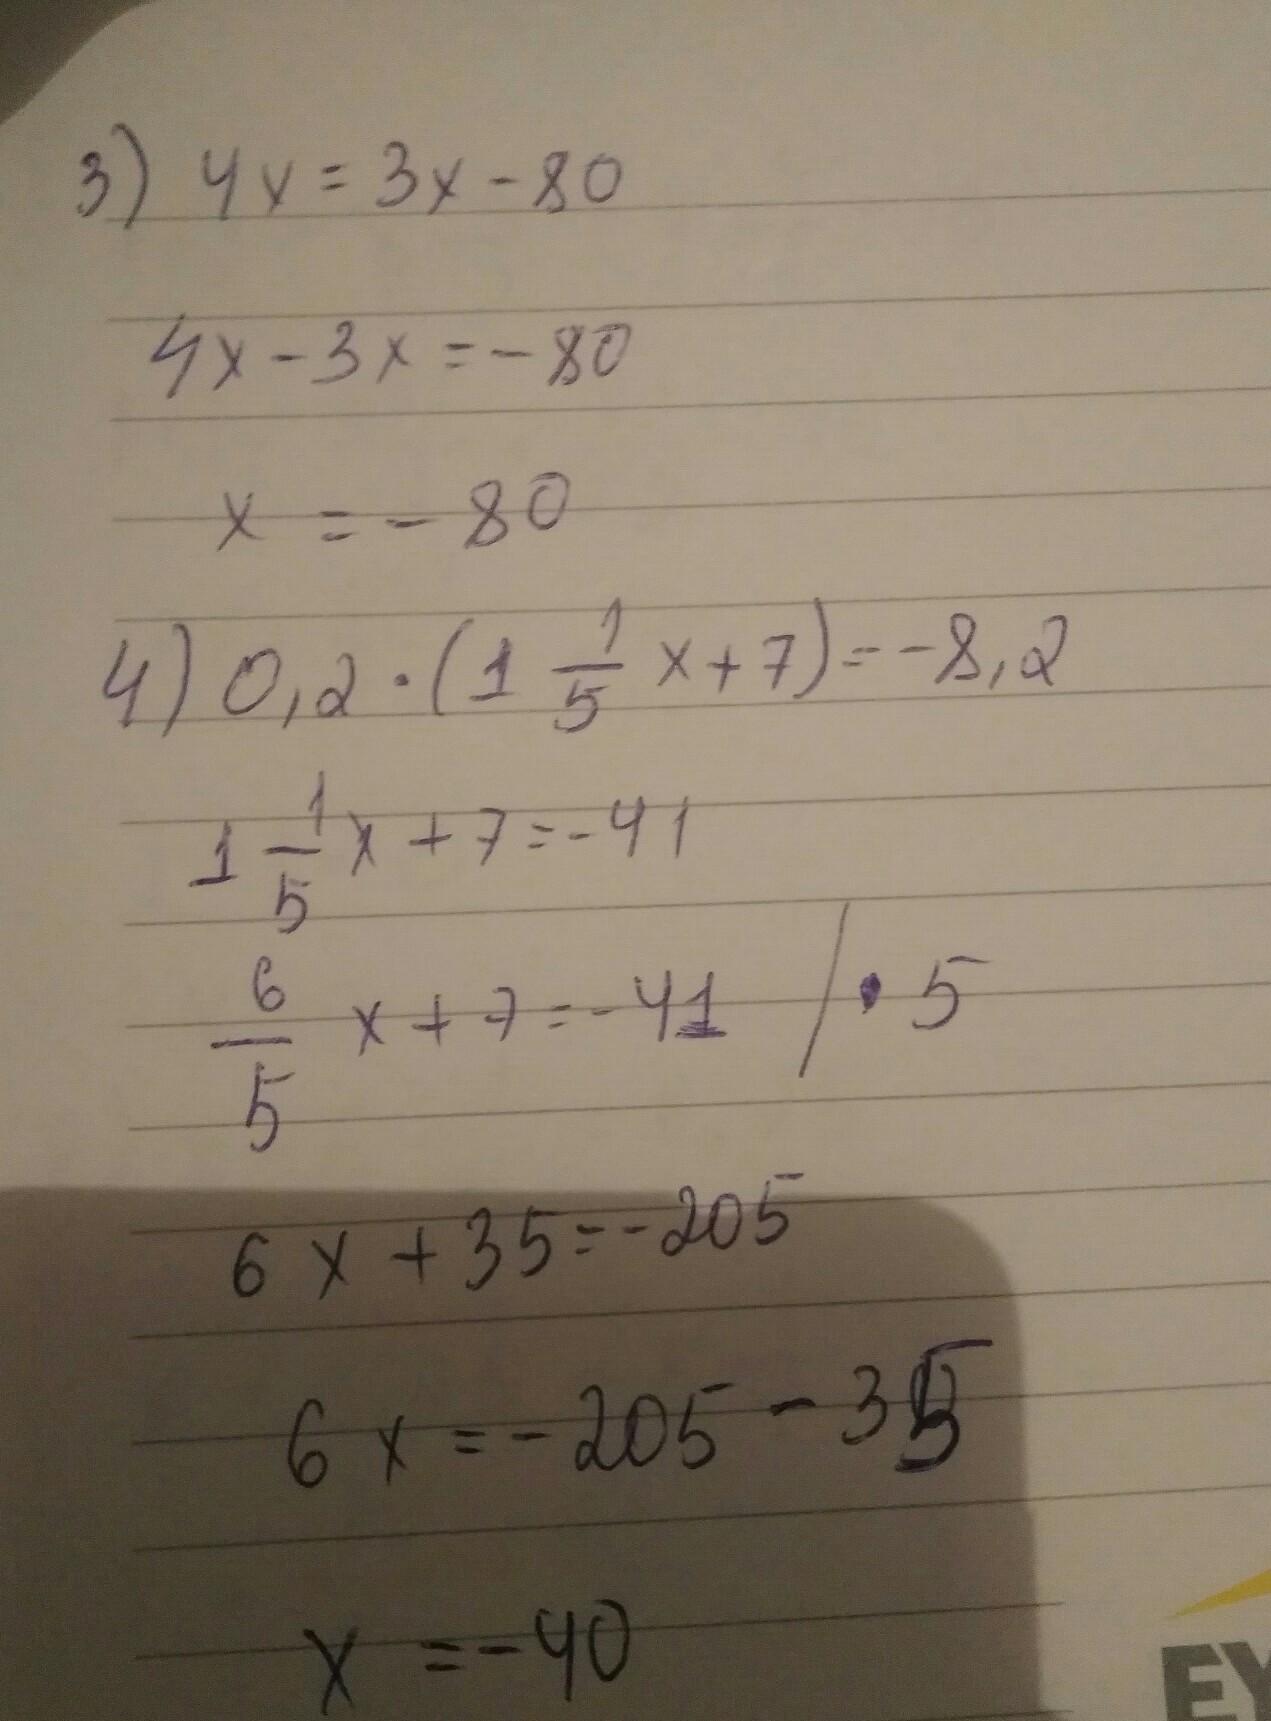 3) 4x = 3x - 80
4x - 3x = - 80
x = - 80
4) 0,2 · (1 1/5 x + 7) = - 8,2
1 1/5 x + 7 = - 41
6/5 x + 7 = - 41 / · 5
6x + 35 = - 205
6x = - 205 - 35
x = - 40
EY